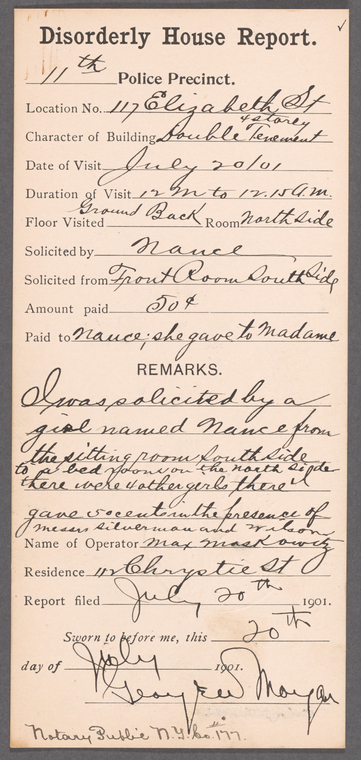 Disorderly House Report.
11th Police Precinct.
Location No. 117 Elizabeth St
4 storey
Character of Building Double Tenement
Date of Visit July 20/01
Duration of Visit 12 M to 12.15 A.M.
Floor Visited Ground Back Room North Side
Solicited by Nance
Solicited from Front Room South Side
Amount paid 50¢
Paid to Nance; she gave to Madame
REMARKS.
I was solicited by a
girl named Nance from
the sitting room South Side
to a bed room on the North Side
there were 4 other girls there I
gave 50 cent in the presence of
messrs Silverman and Wilson
Name of Operator Max Moskowitz
Residence 112 Chrystie St
Report filed July 20th 1901.
Sworn to before me, this 20th
day of July 1901.
George W Morgan
Notary Public N.Y. Co. 177.